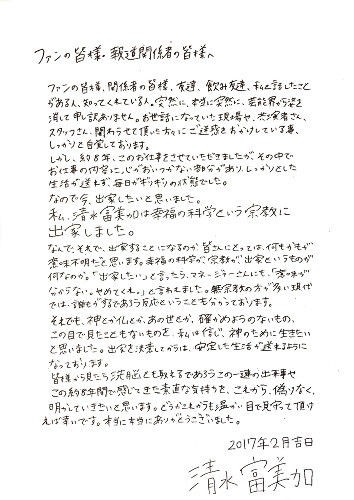 ファンの皆様・報道関係者の皆様へ
ファンの皆様、関係者の皆様、友達、飲み友達、私と話したこと
がある人、知ってくれている人。突然に、本当に突然に、芸能界から姿を
消して申し訳ありません。お世話になっていた現場や、共演者さん、
スタッフさん、関わらせて頂いた方々にご迷惑をおかけしている事、
しっかりと自覚しております。
しかし、約8年、このお仕事をさせていただきましたが、その中で
お仕事の内容に、心がおいつかない部分があり、しっかりとした
生活が送れず、毎日がギリギリの状態でした。
なので今、出家したいと思いました。
私、清水富美加は幸福の科学という宗教に
出家しました。
なんで、それで、出家することになるのか皆さんにとっては、何もかもが
意味不明だと思います。幸福の科学が、宗教が、出家というものが
何なのか。「出家したい。」と言ったら、マネージャーさんにも、「意味が
分からない。やめてくれ。」と言われました。無宗教の方が多い現代
では、誰もがするであろう反応ということも分かっております。
それでも、神とか仏とか、あの世とか、確かめようのないもの、
この目で見たこともないものを、私は信じ、神のために生きたい
と思いました。出家を決意してからは、安定した生活が送れるように
なっております。
皆様から見たら洗脳とも取れるであろうこの一連の出来事や
この約8年間で感じてきた素直な気持ちを、これから、偽りなく、
明かしていきたいと思います。どうかこれからも温かい目で見守って頂け
れば幸いです。本当に本当にありがとうございました。
2017年2月吉日
清水富美加